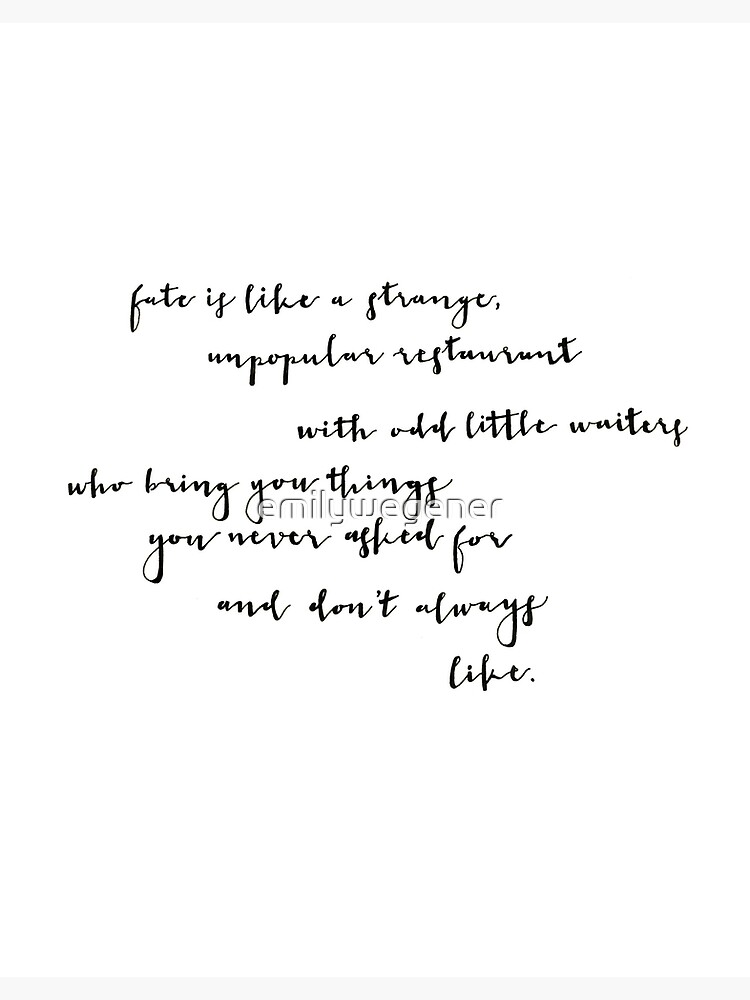 fate is like a strange,
unpopular restaurant
with odd little waiters
who bring you things
emilywegener
you never asked for
and don't always
like.